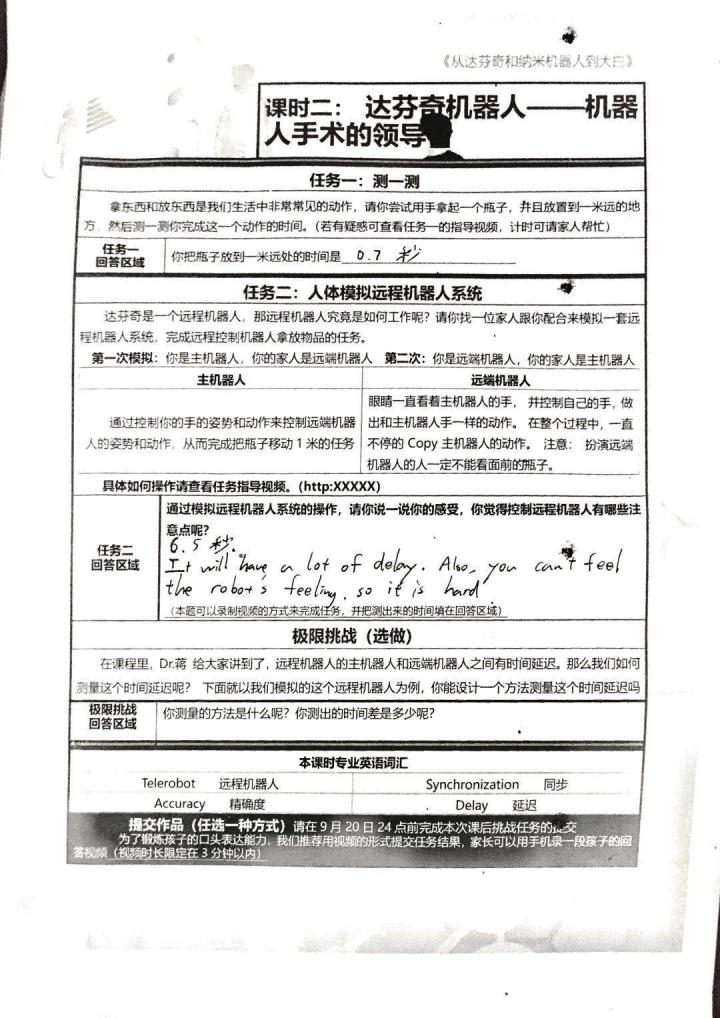 《从达芬奇和纳米机器人到大白》
课时二： 达芬奇机器人——机器
人手术的领导
任务一：测一测
拿东西和放东西是我们生活中非常常见的动作，请你尝试用手拿起一个瓶子，并且放置到一米远的地
方，然后测一测你完成这一个动作的时间。（若有疑惑可查看任务一的指导视频，计时可请家人帮忙）
任务一
回答区域
你把瓶子放到一米远处的时间是 0.7 秒
任务二：人体模拟远程机器人系统
达芬奇是一个远程机器人，那远程机器人究竟是如何工作呢？请你找一位家人跟你配合来模拟一套远
程机器人系统，完成远程控制机器人拿放物品的任务。
第一次模拟：你是主机器人，你的家人是远端机器人 第二次：你是远端机器人，你的家人是主机器人
主机器人
通过控制你的手的姿势和动作来控制远端机器
人的姿势和动作，从而完成把瓶子移动 1 米的任务
远端机器人
眼睛一直看着主机器人的手， 并控制自己的手，做
出和主机器人手一样的动作。 在整个过程中，一直
不停的 Copy 主机器人的动作。 注意： 扮演远端
机器人的人一定不能看面前的瓶子。
具体如何操作请查看任务指导视频。（http:XXXXX）
任务二
回答区域
通过模拟远程机器人系统的操作，请你说一说你的感受，你觉得控制远程机器人有哪些注
意点呢？
6.5 秒.
It will have a lot of delay. Also, you can't feel
the robot's feeling. so it is hard
（本题可以录制视频的方式来完成任务，并把测出来的时间填在回答区域）
极限挑战（选做）
在课程里，Dr.蒋 给大家讲到了，远程机器人的主机器人和远端机器人之间有时间延迟。那么我们如何
测量这个时间延迟呢？ 下面就以我们模拟的这个远程机器人为例，你能设计一个方法测量这个时间延迟吗
极限挑战
回答区域
你测量的方法是什么呢？你测出的时间差是多少呢？
本课时专业英语词汇
Telerobot 远程机器人 Synchronization 同步
Accuracy 精确度 Delay 延迟
提交作品（任选一种方式）请在 9 月 20 日 24 点前完成本次课后挑战任务的提交
为了锻炼孩子的口头表达能力，我们推荐用视频的形式提交任务结果，家长可以用手机录一段孩子的回
答视频（视频时长限定在 3 分钟以内）